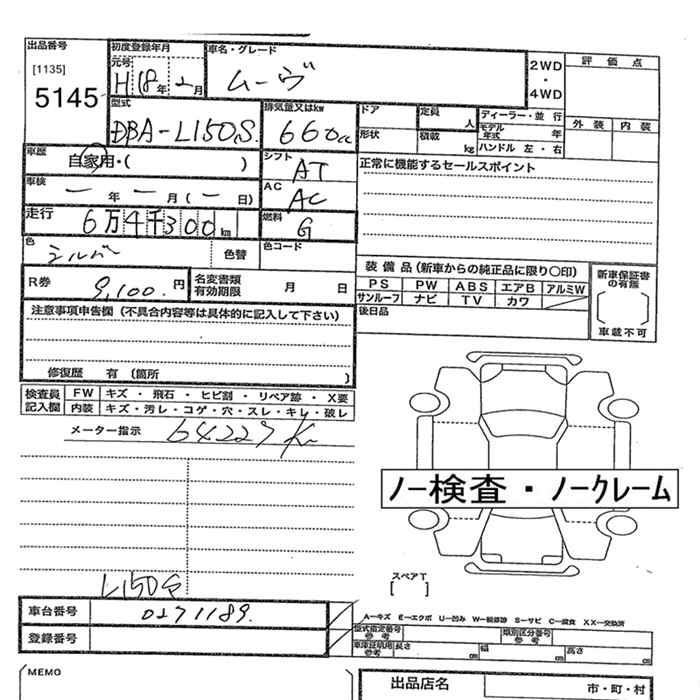 出品番号
[1135]
5145
初度登録年月
元号
H18年2月
車名・グレード
ムーヴ
2WD
・
4WD
評価点
外装 内装
型式
DBA-L150S
排気量又はkw
660cc
ドア
形状
定員 人
積載 kg
ディーラー・並行
モデル年式 年
ハンドル 左・右
車歴
自家用・( )
シフト
AT
正常に機能するセールスポイント
車検
ー年ー月(ー日)
AC
AC
走行
6万4千300km
燃料
G
色
シルバー
色替
色コード
装備品(新車からの純正品に限り〇印)
PS PW ABS エアB アルミW
サンルーフ ナビ TV カワ
後日品
新車保証書の有無
車載不可
R券
9,100円
名変書類有効期限 月 日
注意事項申告欄(不具合内容等は具体的に記入して下さい)
修復歴 有(箇所 )
検査員記入欄
FW キズ・飛石・ヒビ割・リペア跡・X要
内装 キズ・汚レ・コゲ・穴・スレ・キレ・破レ
メーター指示
64227Km
ノー検査・ノークレーム
スペアT
[ ]
L150S
車台番号
0271189
登録番号
A-キズ E-エクボ U-凹み W-補修跡 S-サビ C-腐食 XX-交換済
型式指定番号 参考
類別区分番号 参考
車庫証明用 参考 長さ cm 幅 cm 高さ cm
MEMO
出品店名
市・町・村